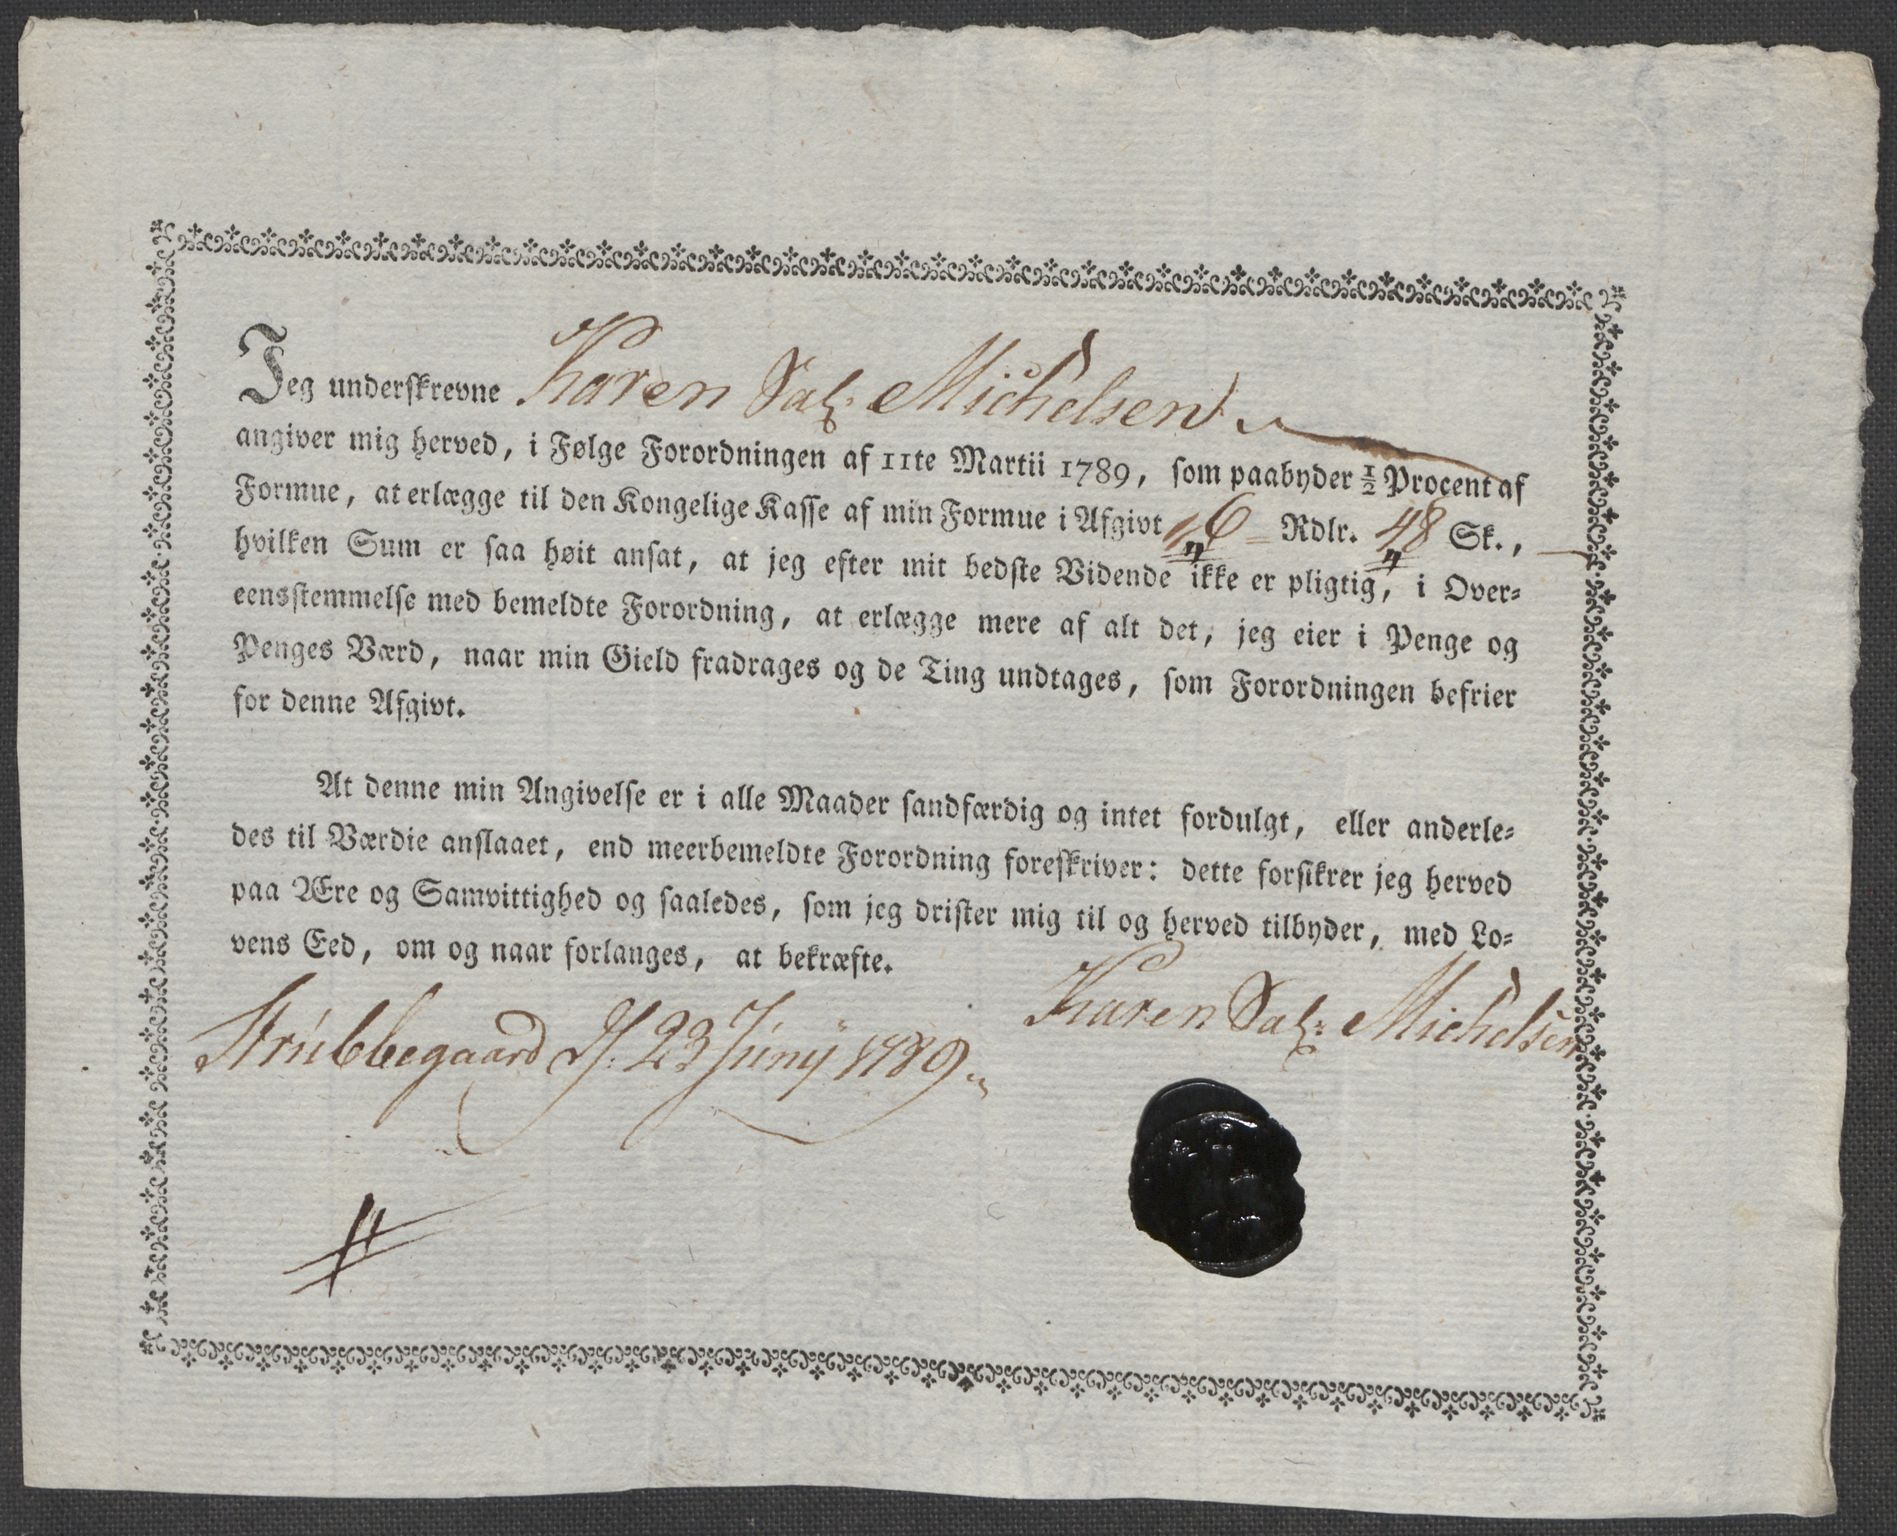 Jeg underskrevne Karen Sal: Michelsen
angiver mig herved, i Følge Forordningen af 11te Martii 1789, som paabyder ½ Procent af
Formue, at erlægge til den Kongelige Kasse af min Formue i Afgivt 16 Rdlr. 48 Sk.,
hvilken Sum er saa høit ansat, at jeg efter mit bedste Vidende ikke er pligtig, i Over=
eensstemmelse med bemeldte Forordning, at erlægge mere af alt det, jeg eier i Penge og
Penges Værd, naar min Gield fradrages og de Ting undtages, som Forordningen befrier
for denne Afgivt.
At denne min Angivelse er i alle Maader sandfærdig og intet fordulgt, eller anderle=
des til Værdie anslaaet, end meerbemeldte Forordning foreskriver: dette forsikrer jeg herved
paa Ære og Samvittighed og saaledes, som jeg drister mig til og herved tilbyder, med Lo=
vens Eed, om og naar forlanges, at bekræfte.
Karen Sal: Michelsen
Strübbegaard d. 23 Junij 1789